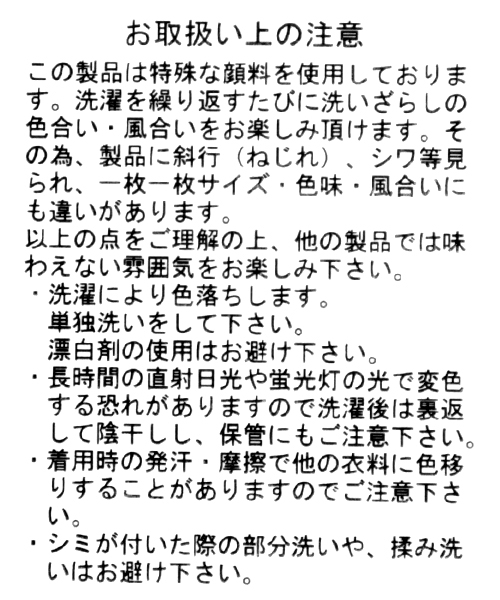 お取扱い上の注意
この製品は特殊な顔料を使用しておりま
す。洗濯を繰り返すたびに洗いざらしの
色合い・風合いをお楽しみ頂けます。そ
の為、製品に斜行（ねじれ）、シワ等見
られ、一枚一枚サイズ・色味・風合いに
も違いがあります。
以上の点をご理解の上、他の製品では味
わえない雰囲気をお楽しみ下さい。
・洗濯により色落ちします。
単独洗いをして下さい。
漂白剤の使用はお避け下さい。
・長時間の直射日光や蛍光灯の光で変色
する恐れがありますので洗濯後は裏返
して陰干しし、保管にもご注意下さい。
・着用時の発汗・摩擦で他の衣料に色移
りすることがありますのでご注意下さ
い。
・シミが付いた際の部分洗いや、揉み洗
いはお避け下さい。